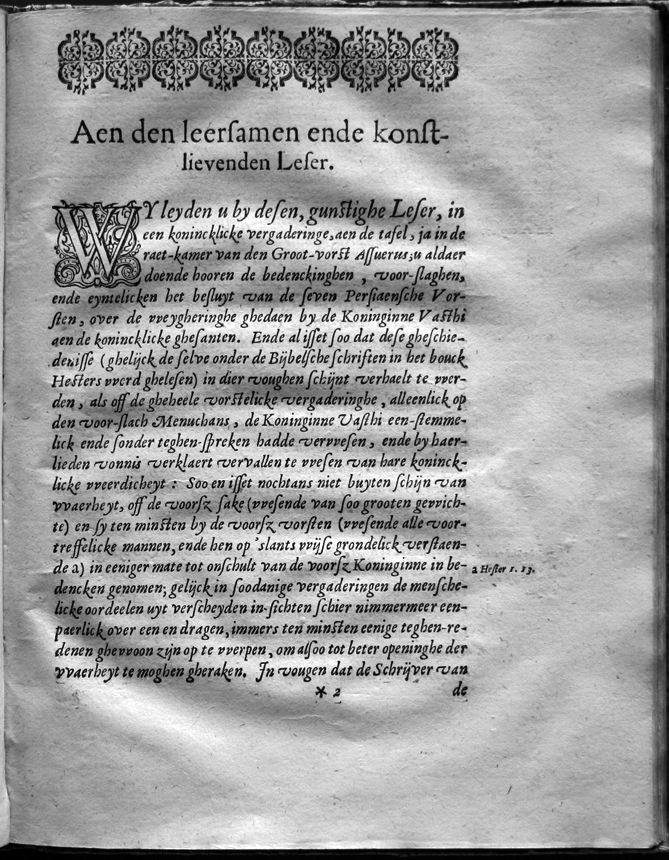 Aen den leerſamen ende konſt-
lievenden Leſer.
WY leyden u by deſen, gunſtighe Leſer, in
een konincklicke vergaderinge, aen de tafel, ja in de
raet-kamer van den Groot-vorſt Aſſuerus; u aldaer
doende hooren de bedenckinghen, voor-ſlaghen,
ende eyntelicken het beſluyt van de ſeven Perſiaenſche Vor-
ſten, over de vveygheringhe ghedaen by de Koninginne Vaſthi
aen de konincklicke gheſanten. Ende al iſſet ſoo dat deſe gheſchie-
deniſſe (ghelijck de ſelve onder de Bijbelſche ſchriften in het bouck
Heſters vverd gheleſen) in dier voughen ſchijnt verhaelt te vver-
den, als off de gheheele vorſtelicke vergaderinghe, alleenlick op
den voor-ſlach Menuchans, de Koninginne Vaſthi een-ſtemme-
lick ende ſonder teghen-ſpreken hadde vervveſen, ende by haer-
lieden vonnis verklaert vervallen te vveſen van hare koninck-
licke vveerdicheyt: Soo en iſſet nochtans niet buyten ſchijn van
vvaerheyt, off de voorſz ſake (vveſende van ſoo grooten gevvich-
te) en ſy ten minſten by de voorſz vorſten (vveſende alle voor-
treffelicke mannen, ende hen op 'slants vvijſe grondelick verſtaen-
de a) in eeniger mate tot onſchult van de voorſz Koninginne in be-
dencken genomen; gelijck in ſoodanige vergaderingen de menſche-
licke oordeelen uyt verſcheyden in-ſichten ſchier nimmermeer een-
paerlick over een en dragen, immers ten minſten eenige teghen-re-
denen ghevvoon zijn op te vverpen, om alſoo tot beter openinghe der
vvaerheyt te moghen gheraken. In vougen dat de Schrijver van
a Heſter 1. 13.
* 2 de